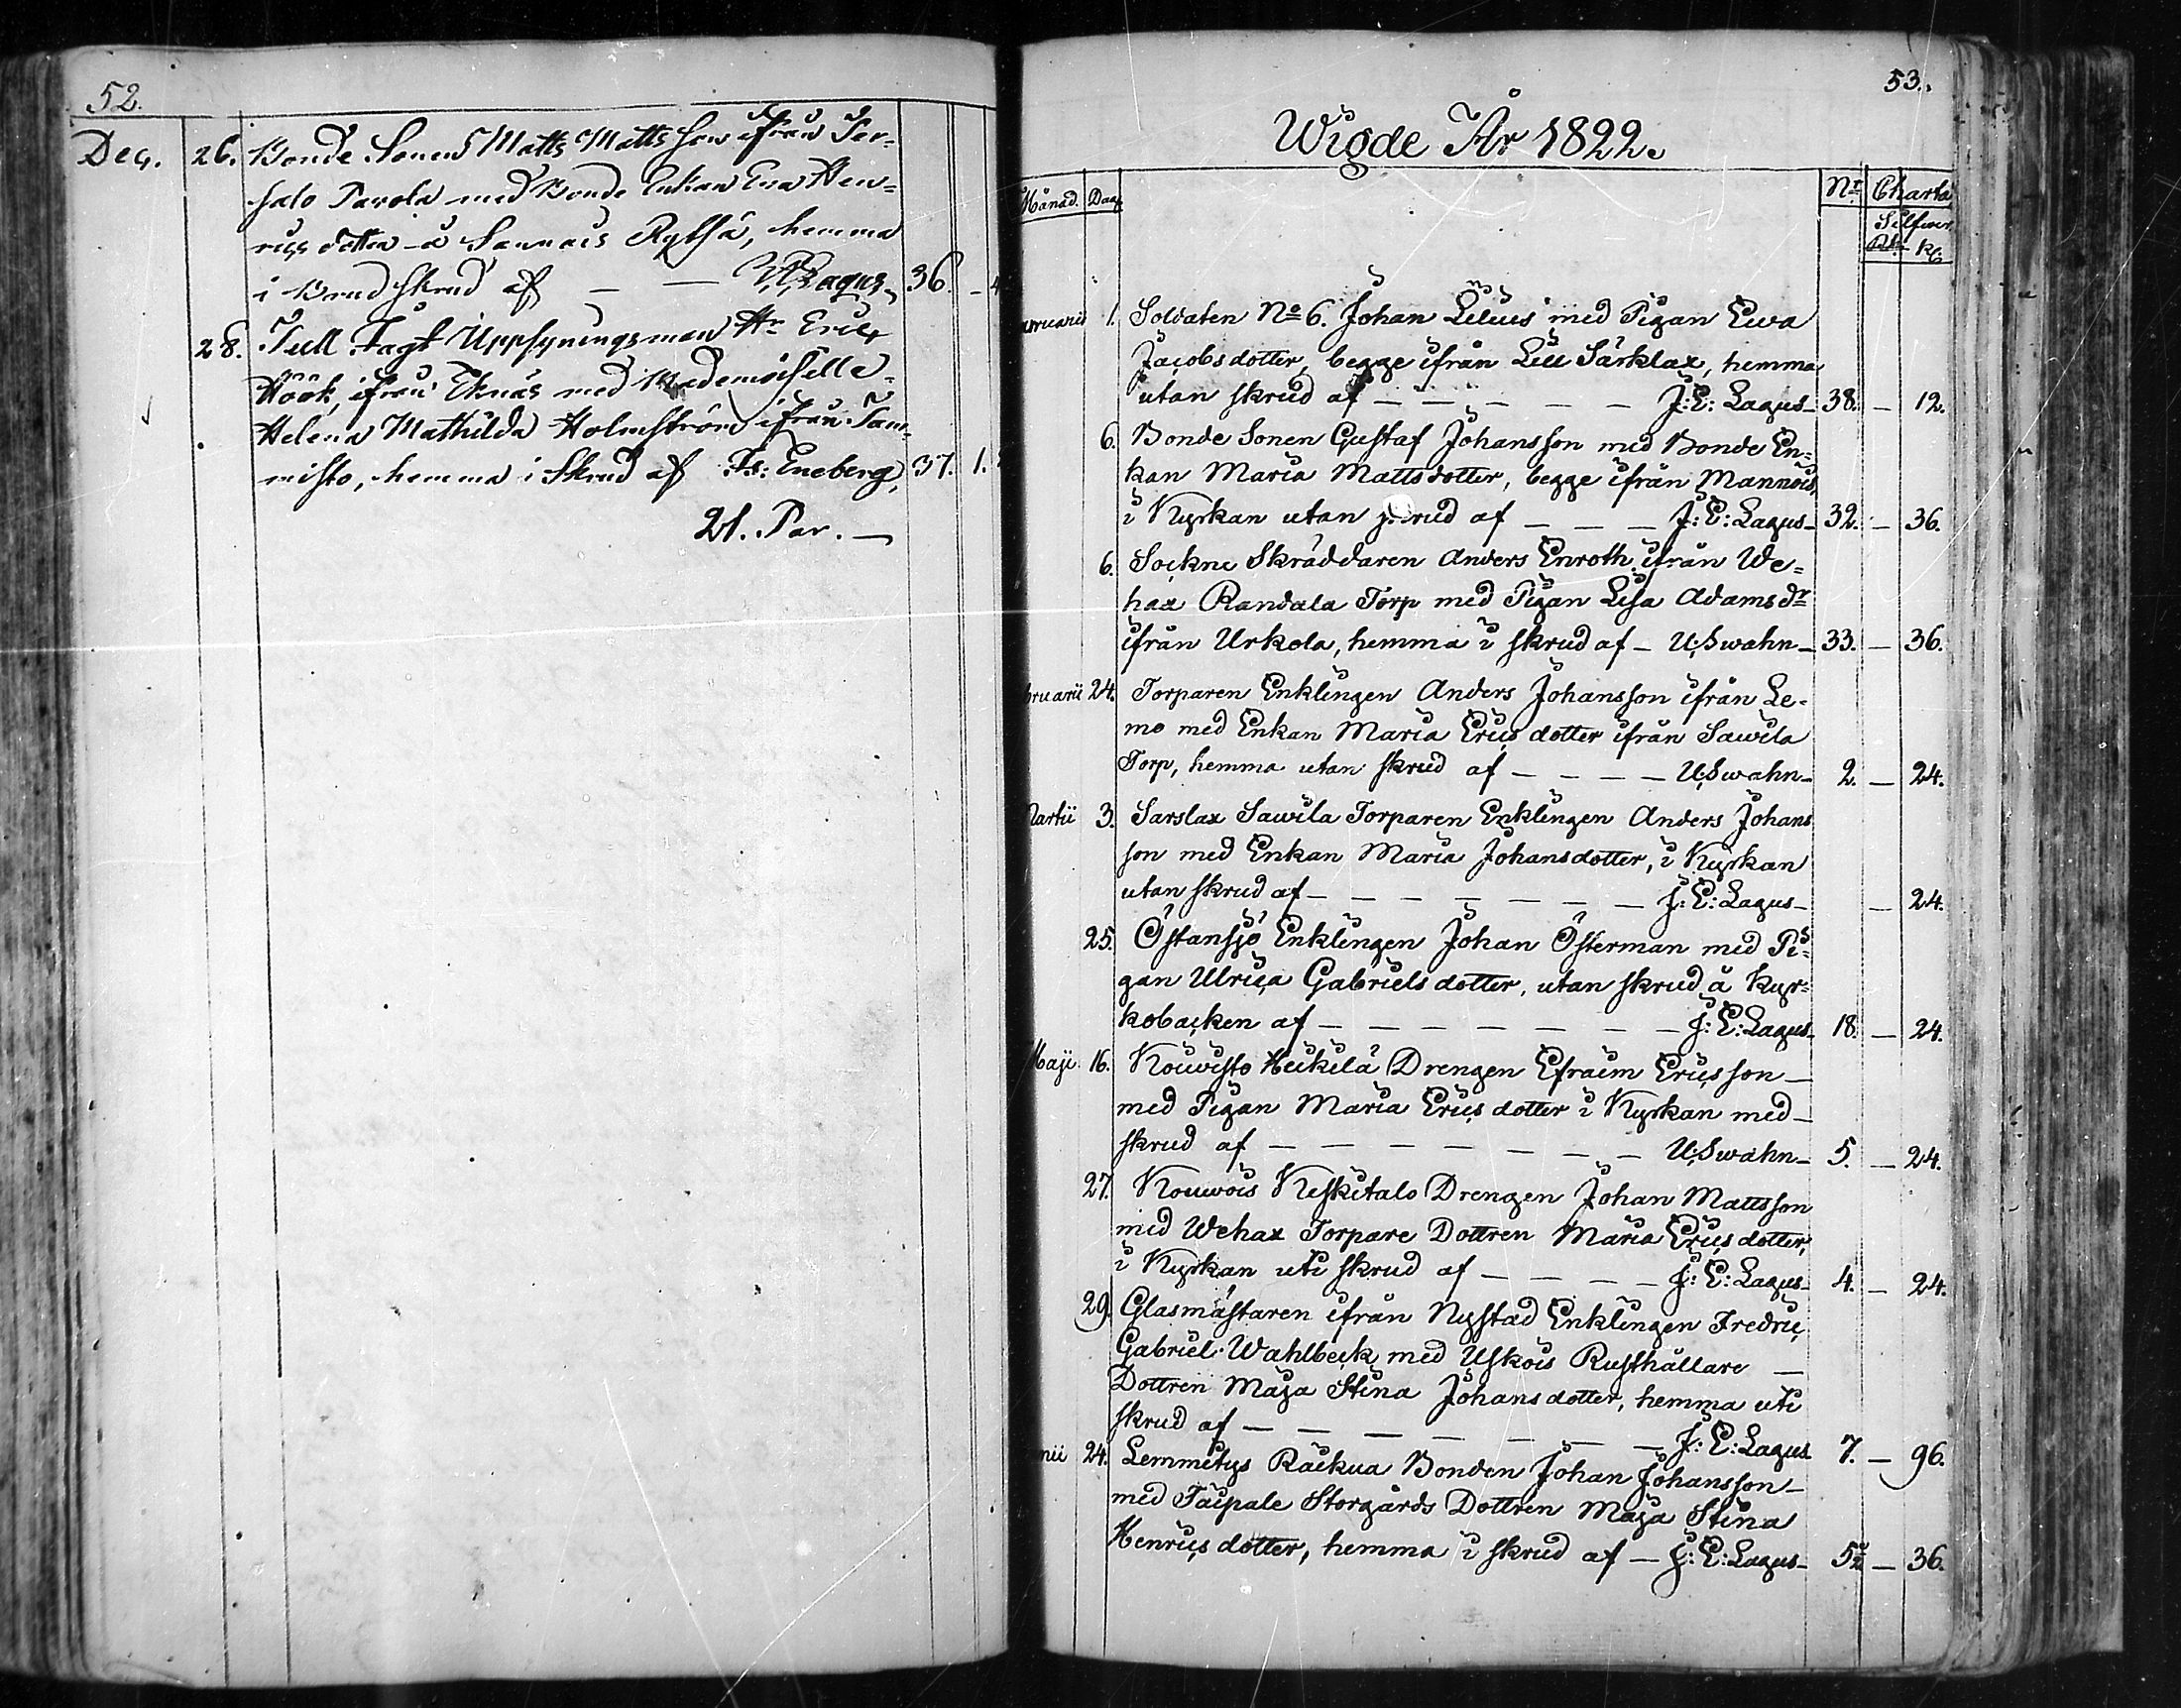 52.
Dec. 26. Bonde Sonen Matts Mattsson ifrån Per-
salo Parola med Bonde Enkan Eva Hen=
rics dotter å Sannais Rytsä, hemma
i Brudskrud af — — Lagus, 36.
28. Tull Jagt Uppsyningsman Hr Eric
Höök, ifrån Eknäs med Mademoiselle
Helena Mathilda Holmström ifrån Tam-
misto, hemma i Skrud af Fs: Eneberg, 37. 1.
21. Par. —
53.
Wigde År 1822.
Månad. Dag. Nr Charta
Silfwer
Rb. K.
1. Soldaten No 6. Johan Lilius med Pigan Ewa
Jacobsdotter, begge ifrån Lill Särklax, hemma
utan skrud af — — — — — J: E: Lagus — 38. — 12.
6. Bonde Sonen Gustaf Johansson med Bonde En=
kan Maria Mattsdotter, begge ifrån Mannois,
i Kyrkan utan skrud af — — — J: E: Lagus — 32. — 36.
6. Sockne Skräddaren Anders Enroth ifrån We=
hax Randala Torp med Pigan Lisa Adams dr
ifrån Urkola, hemma i skrud af — U: Swahn — 33. — 36.
bruarii 24. Torparen Enklingen Anders Johansson ifrån Le-
mo med Enkan Maria Erics dotter ifrån Sawila
Torp, hemma utan skrud af — — — — U: Swahn — 2. — 24.
Martii 3. Sarslax Sawila Torparen Enklingen Anders Johans
son med Enkan Maria Johansdotter, i Kyrkan
utan skrud af — — — — — — — J: E: Lagus — — 24.
25. Östansjö Enklingen Johan Österman med Pi=
gan Ulrica Gabriels dotter, utan skrud å Kyr=
kobacken af — — — — — — — J: E: Lagus — 18. — 24.
Maji. 16. Koiwisto Heikilä Drengen Efraim Ericsson —
med Pigan Maria Erics dotter i Kyrkan med —
skrud af — — — — — — — U: Swahn — 5. — 24.
27. Kouwois Keskitalo Drengen Johan Mattsson
med Wehax Torpare Dottren Maria Erics dotter,
i Kyrkan uti skrud af — — — — J: E: Lagus — 4. — 24.
29. Glasmästaren ifrån Nystad Enklingen Fredric
Gabriel Wahlbeck med Uskois Rusthållare —
Dottren Maja Stina Johans dotter, hemma uti
skrud af — — — — — — — J: E: Lagus 7. — 96.
nii 24. Lemmetys Räikua Bonden Johan Johansson —
med Taipale Storgårds Dottren Maja Stina
Henrics dotter, hemma i skrud af — J: E: Lagus — 5½ — 36.